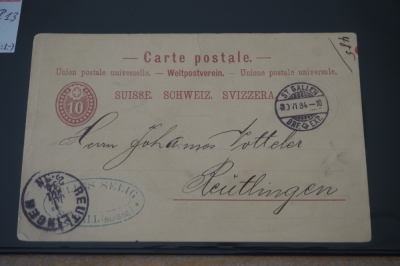 213
Carte postale.
Union postale universelle. — Weltpostverein. — Unione postale universale.
SUISSE. SCHWEIZ. SVIZZERA.
10
ST GALLEN
VI 84 - 10
BRF. EXP.
Herrn Johannes Votteler
Reutlingen
SELIG
REUTLINGEN